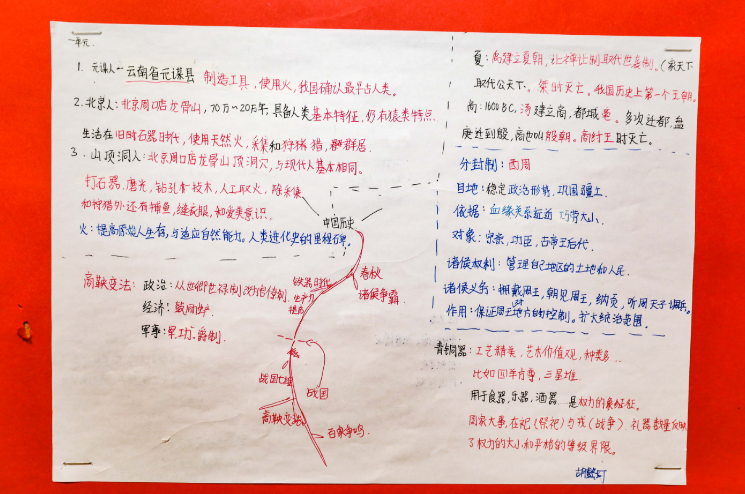 一单元.
1. 元谋人—云南省元谋县 制造工具，使用火，我国确认最早古人类。
2. 北京人：北京周口店龙骨山，70万~20万年，具备人类基本特征，仍有猿类特点
生活在旧时石器时代，使用天然火，采集和狩猎，群居
3. 山顶洞人：北京周口店龙骨山顶洞穴，与现代人基本相同。
打石器，磨光，钻孔技术，人工取火，除采集
和狩猎外还有捕鱼，缝衣服，知爱美意识
火：提高原始人生存，与适应自然能力，人类进化史的里程碑
中国历史
商鞅变法：政治：从世卿世禄制
经济：
军事：军功爵制
铁器时代
生产力
提高
春秋
诸侯争霸
战国七雄
战国
商鞅变法
百家争鸣
夏：禹建立夏朝，让禅让制取代世袭制.（家天下
取代公天下. 桀时灭亡。我国历史上第一个王朝.
商：1600BC，汤建立商，都城亳。多次迁都，盘
庚迁到殷，商也叫殷朝。商纣王时灭亡。
分封制：西周
目地：稳定政治形势，巩固疆土.
依据：血缘关系远近 功劳大小.
对象：宗亲，功臣，古帝王后代.
诸侯权利：管理自己地区的土地和人民.
诸侯义务：拥戴周王，朝见周王，纳贡，听周天子调兵.
作用：保证周王对地方的控制。扩大统治范围.
青铜器：工艺精美，艺术价值观，种类多
比如四羊方尊，三星堆
用于食器，乐器，酒器 是权力的象征.
国家大事，在祀（祭祀）与戎（战争）礼器数量反映
了权力的大小和平格的等级界限。